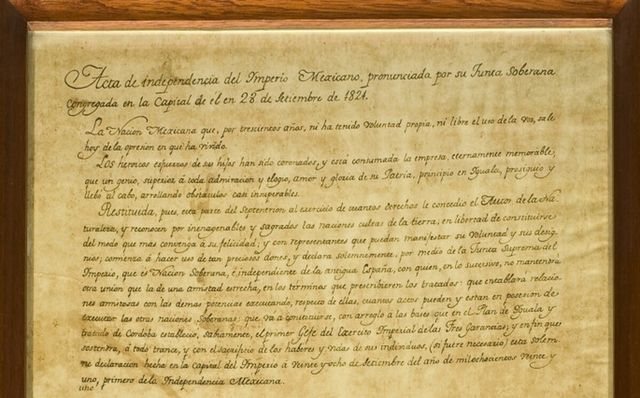 Acta de independencia del Imperio Mexicano, pronunciada por su Junta Soberana
congregada en la Capital de él en 28 de Setiembre de 1821.
La Nacion Mexicana que, por trescientos años, ni ha tenido voluntad propia, ni libre el uso de la voz, sale
hoy de la opresion en que ha vivido.
Los heroicos esfuerzos de sus hijos han sido coronados, y está consumada la empresa, eternamente memorable,
que un genio, superior á toda admiracion y elogio, amor y gloria de su Patria, principió en Iguala, prosiguió y
llebó al cabo, arrollando obstáculos casi insuperables.
Restituida, pues, esta parte del Septentrion al exercicio de cuantos derechos le concedió el Autor de la Na-
turaleza, y reconocen por inenagenables y sagrados las naciones cultas de la tierra; en libertad de constituirse
del modo que mas convenga á su felicidad; y con representantes que puedan manifestar su voluntad y sus desig-
nios; comienza á hacer uso de tan preciosos dones, y declara solemnemente, por medio de la Junta Suprema del
Imperio, que es Nacion Soberana, é independiente de la antigua España, con quien, en lo succesivo, no mantendrá
otra union que la de una amistad estrecha, en los terminos que prescribieren los tratados: que entablará relacio-
nes amistosas con las demas potencias executando, respecto de ellas, cuantos actos pueden y estan en posesion de
executar las otras naciones Soberanas: que vá á constituirse, con arreglo á las bases que en el Plan de Iguala y
tratado de Cordoba estableció, sabiamente, el primer Gefe del Exercito Imperial de las Tres Garantias; y en fin que
sostendrá, á todo trance, y con el sacrificio de los haberes y vidas de sus individuos, (si fuere necesario) esta solem-
ne declaracion hecha en la capital del Imperio á veinte y ocho de Setiembre del año de mil ochocientos veinte y
uno, primero de la Independencia Mexicana.